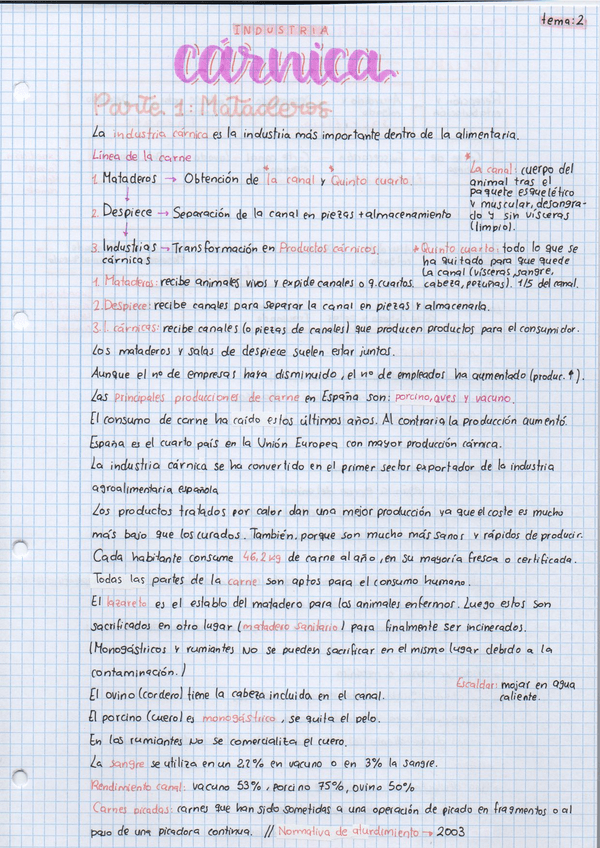 tema: 2
INDUSTRIA
cárnica
Parte 1: Mataderos
La industria cárnica es la industria más importante dentro de la alimentaria.
Línea de la carne
1. Mataderos → Obtención de la canal y Quinto cuarto.
* La canal: cuerpo del
animal tras el
paquete esquelético
y muscular, desangra-
do y sin vísceras
(limpio).
2. Despiece → Separación de la canal en piezas + almacenamiento
3. Industrias → Transformación en Productos cárnicos.
cárnicas
* Quinto cuarto: todo lo que se
ha quitado para que quede
la canal (vísceras, sangre,
cabeza, pezuñas). 1/5 del canal.
1. Mataderos: recibe animales vivos y expide canales o q. cuartos.
2. Despiece: recibe canales para separar la canal en piezas y almacenarla.
3. I. cárnicas: recibe canales (o piezas de canales) que producen productos para el consumidor.
Los mataderos y salas de despiece suelen estar juntos.
Aunque el nº de empresas haya disminuido, el nº de empleados ha aumentado (produc. ↑).
Las principales producciones de carne en España son: porcino, aves y vacuno.
El consumo de carne ha caído estos últimos años. Al contraria la producción aumentó.
España es el cuarto país en la Unión Europea con mayor producción cárnica.
La industria cárnica se ha convertido en el primer sector exportador de la industria
agroalimentaria española
Los productos tratados por calor dan una mejor producción ya que el coste es mucho
más bajo que los curados. También, porque son mucho más sanos y rápidos de producir.
Cada habitante consume 46,2 kg de carne al año, en su mayoría fresca o certificada.
Todas las partes de la carne son aptos para el consumo humano.
El lazareto es el establo del matadero para los animales enfermos. Luego estos son
sacrificados en otro lugar (matadero sanitario) para finalmente ser incinerados.
(Monogástricos y rumiantes NO se pueden sacrificar en el mismo lugar debido a la
contaminación.)
El ovino (cordero) tiene la cabeza incluida en el canal.
Escaldar: mojar en agua
caliente.
El porcino (cuero) es monogástrico, se quita el pelo.
En los rumiantes NO se comercializa el cuero.
La sangre se utiliza en un 2,2% en vacuno o en 3% la sangre.
Rendimiento canal: vacuno 53%, porcino 75%, ovino 50%
Carnes picadas: carnes que han sido sometidas a una operación de picado en fragmentos o al
paso de una picadora continua. // Normativa de aturdimiento → 2003